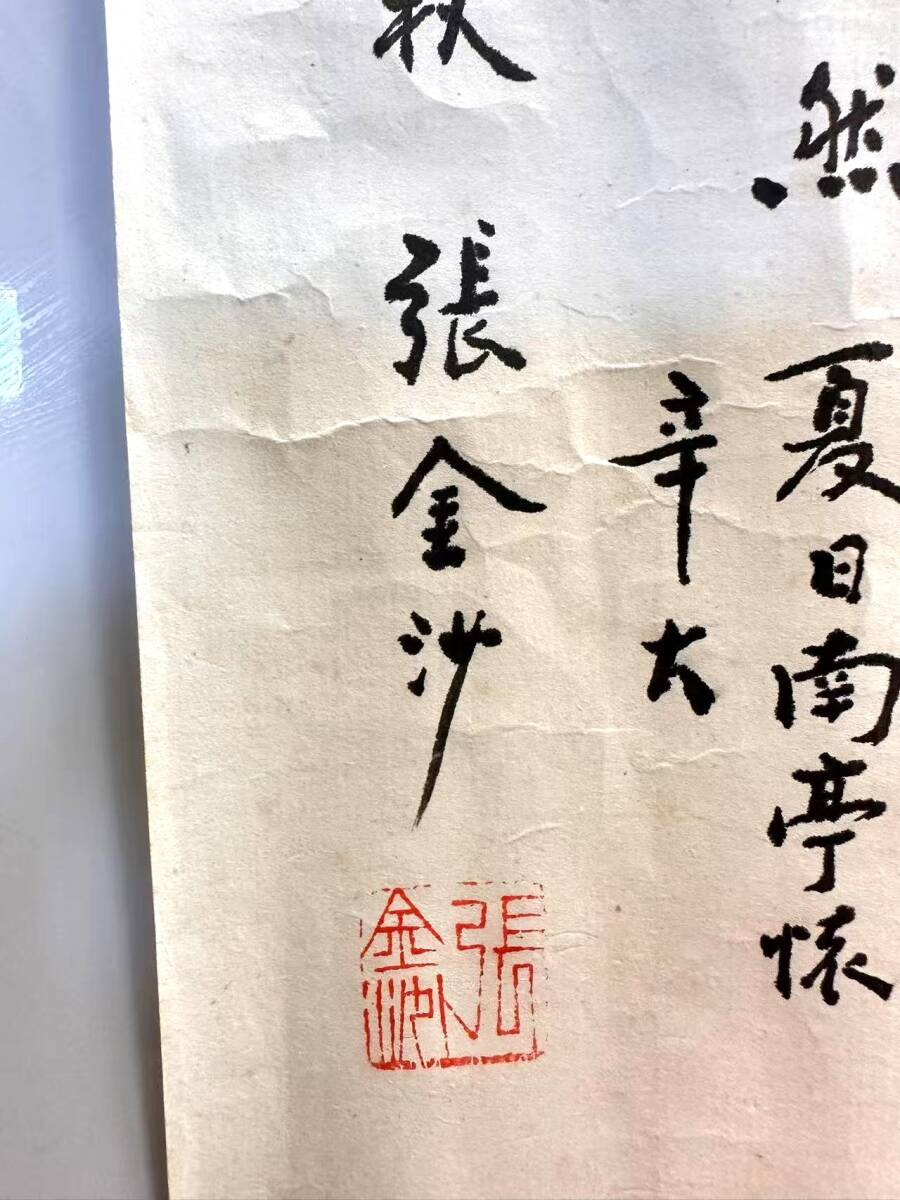 然夏日南亭懷
辛大
秋張金沙
張金沙